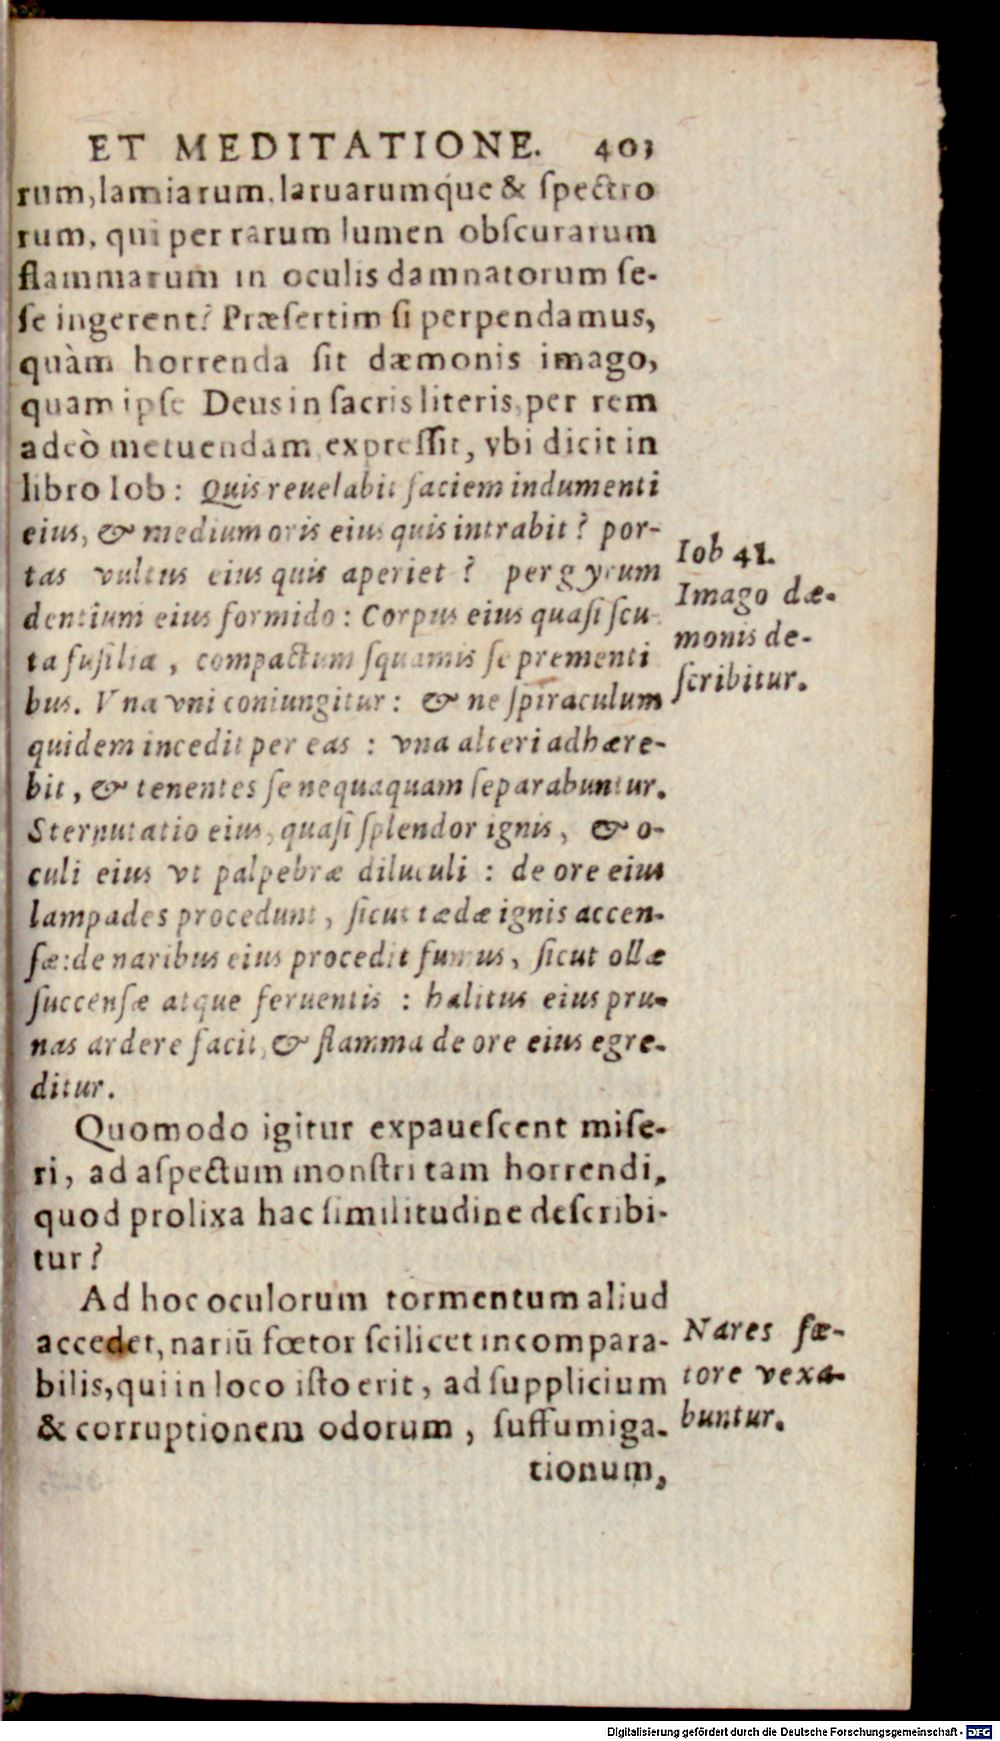 ET MEDITATIONE. 403
rum, lamiarum, laruarumq́ue & ſpectro
rum, qui per rarum lumen obſcurarum
flammarum in oculis damnatorum ſe-
ſe ingerent? Præſertim ſi perpendamus,
quàm horrenda ſit dæmonis imago,
quam ipſe Deus in ſacris literis, per rem
adeò metuendam expreſſit, vbi dicit in
libro Iob: Quis reuelabit faciem indumenti
eius, & medium oris eius quis intrabit? por-
tas vultus eius quis aperiet? per gyrum
dentium eius formido: Corpus eius quaſi ſcu-
ta fuſilia, compactum ſquamis ſe prementi
bus. Vna vni coniungitur: & ne ſpiraculum
quidem incedit per eas: vna alteri adhære-
bit, & tenentes ſe nequaquam ſeparabuntur.
Sternutatio eius, quaſi ſplendor ignis, & o-
culi eius vt palpebræ diluculi: de ore eius
lampades procedunt, ſicut tædæ ignis accen-
ſæ: de naribus eius procedit fumus, ſicut ollæ
ſuccenſæ atque feruentis: halitus eius pru-
nas ardere facit, & flamma de ore eius egre-
ditur.
Iob 41.
Imago dæ-
monis de-
ſcribitur.
Quomodo igitur expaueſcent miſe-
ri, ad aſpectum monſtri tam horrendi,
quod prolixa hac ſimilitudine deſcribi-
tur?
Ad hoc oculorum tormentum aliud
accedet, nariū fœtor ſcilicet incompara-
bilis, qui in loco iſto erit, ad ſupplicium
& corruptionem odorum, ſuffumiga-
tionum,
Nares fœ-
tore vexa-
buntur.
Digitalisierung gefördert durch die Deutsche Forschungsgemeinschaft - DFG